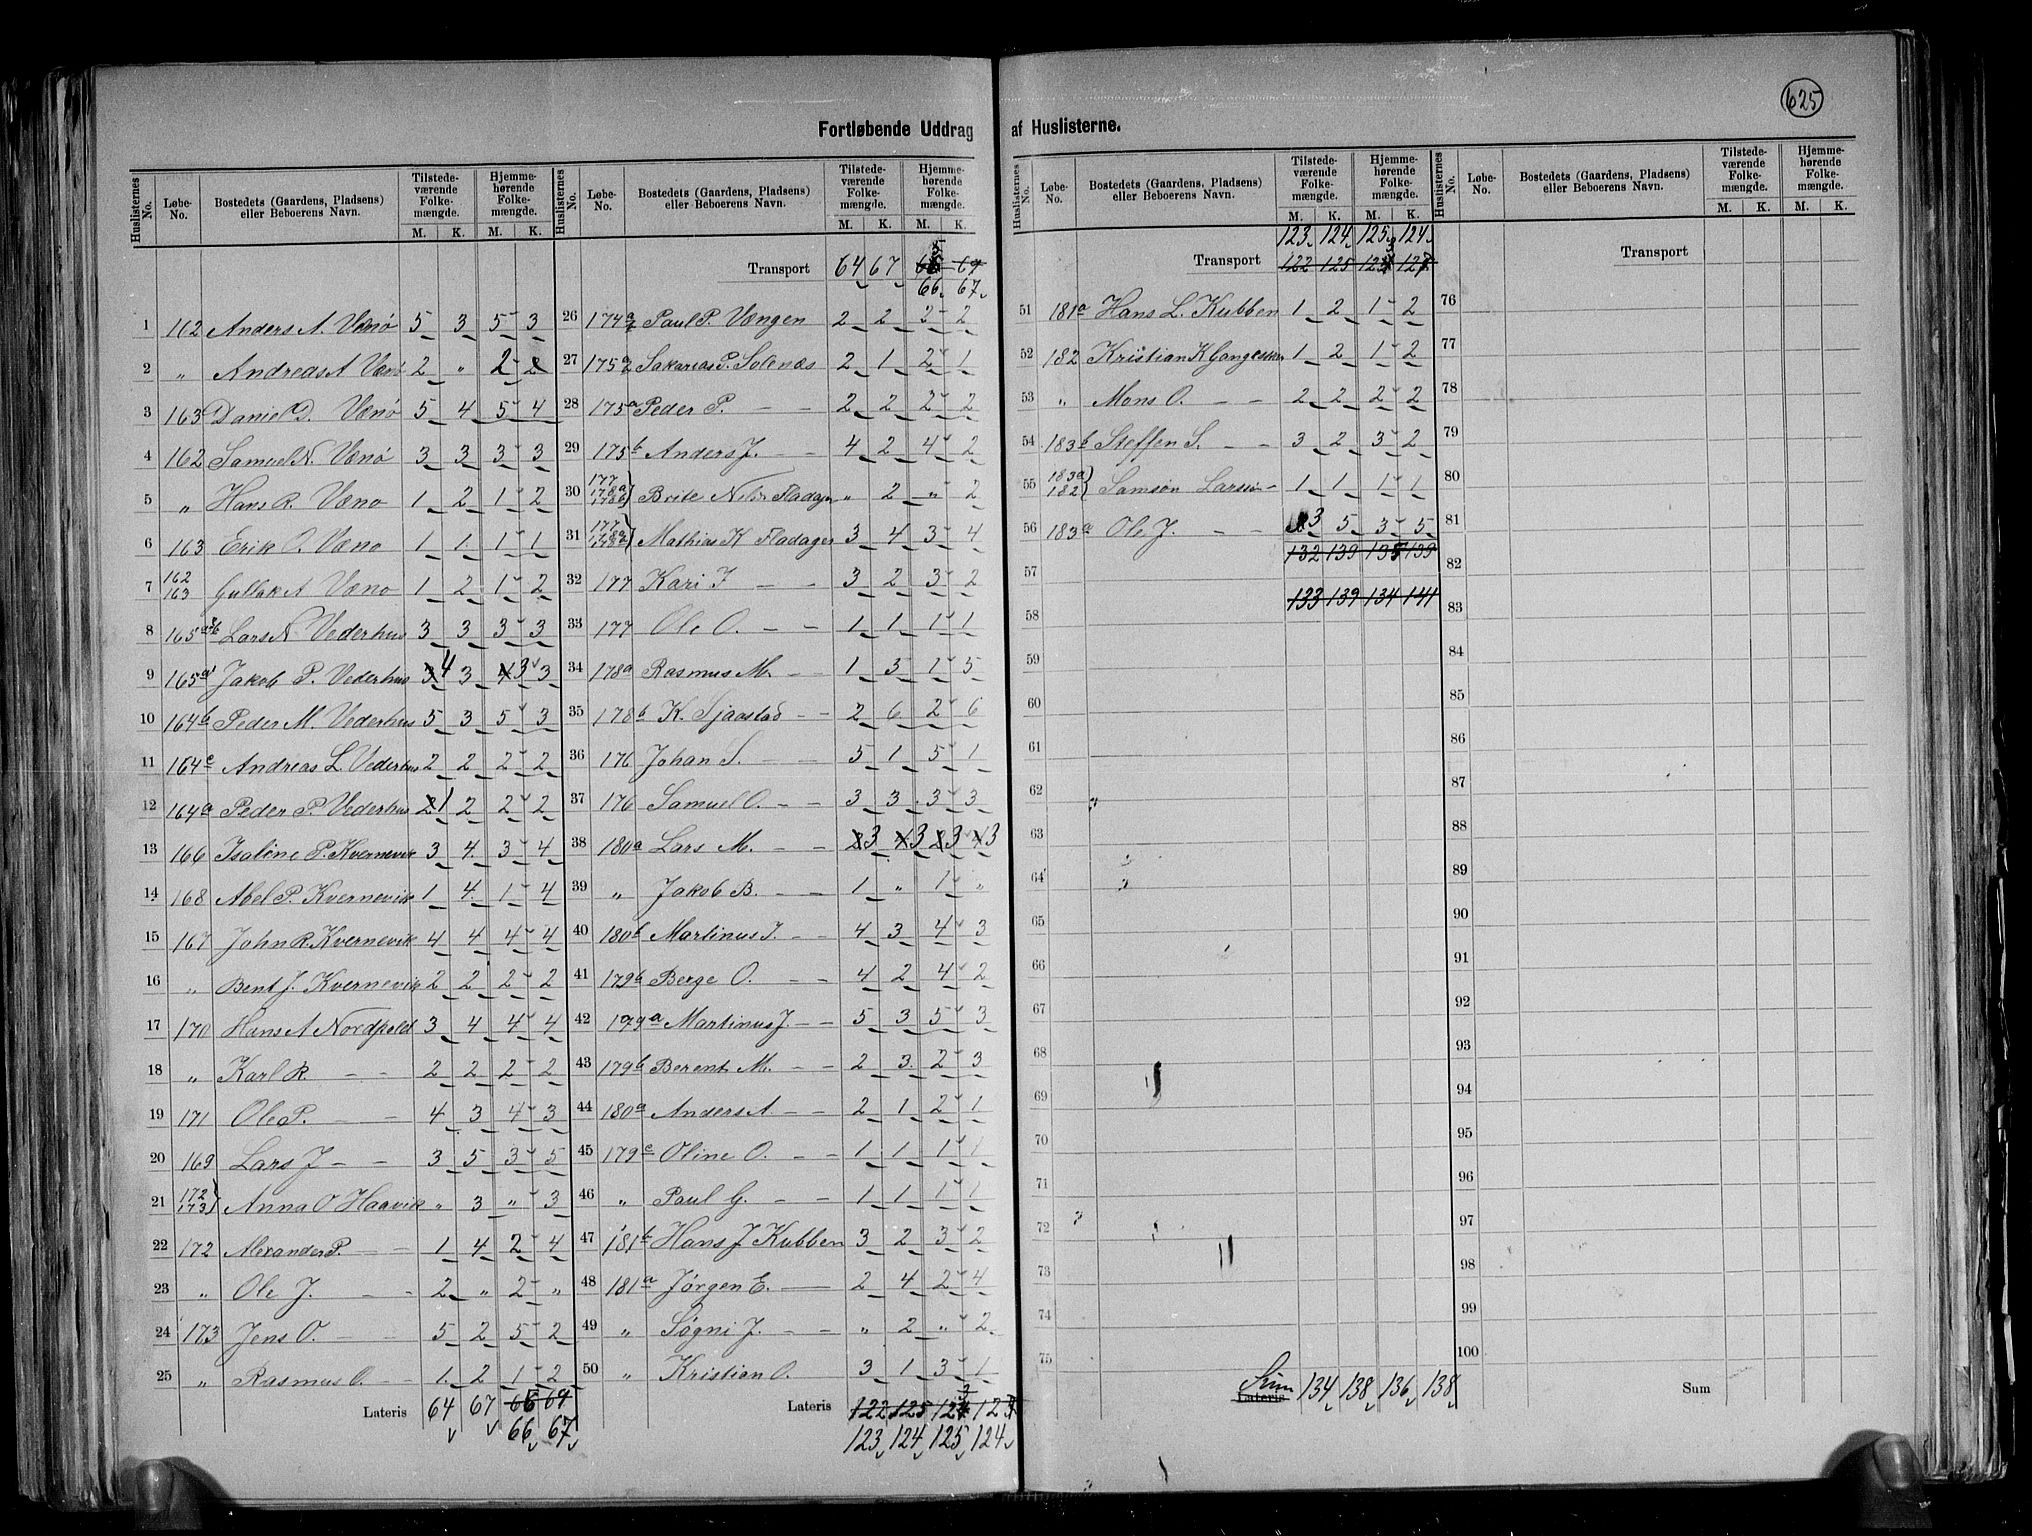 625
Fortløbende Uddrag af Huslisterne.
Huslisternes No. Løbe-No. Bostedets (Gaardens, Pladsens) eller Beboerens Navn. Tilstedeværende Folkemængde. M. K. Hjemmehørende Folkemængde. M. K.
1 162 Anders A. Vænø 5 3 5 3
2 „ Andreas A Vænø 2 „ 2 2
3 163 Daniel D. Vænø 5 4 5 4
4 162 Samuel N. Vænø 3 3 3 3
5 „ Hans R. Væno 1 2 1 2
6 163 Erik O. Væno 1 1 1 1
7 162 163 Gullak A Væno 1 2 1 2
8 165 Lars N Vederhus 3 3 3 3
9 165a Jakob P. Vederhus 4 3 3 3
10 164b Peder M. Vederhus 5 3 5 3
11 164c Andreas L. Vederhus 2 2 2 2
12 164a Peder P. Vederhus 1 2 2 2
13 166 P. Kvernevik 3 4 3 4
14 168 Abel P. Kvernevik 1 4 1 4
15 167 John R. Kvernevik 4 4 4 4
16 „ Bent J. Kvernevik 2 2 2 2
17 170 Hans A Nordfjeld 3 4 4 4
18 „ Karl R. — — 2 2 2 2
19 171 Ole P. — 4 3 4 3
20 169 Lars J — — 3 5 3 5
21 172 173 Anna O Haavik „ 3 „ 3
22 172 Alexander P. — 1 4 2 4
23 „ Ole J. — - 2 „ 2 „
24 173 Jens O. — — 5 2 5 2
25 „ Rasmus O. — 1 2 1 2
Lateris 64 67
66 67
Transport 64 67
66 67
26 174a Paul P. Vængen 2 2 2 2
27 175a Sakarias P. Solenæs 2 1 2 1
28 175a Peder P. — — 2 2 2 2
29 175b Anders J. — — 4 2 4 2
30 177 178a 178b Brite Fladager „ 2 „ 2
31 177 178a Mathias K Fladager 3 4 3 4
32 177 Kari J — — 3 2 3 2
33 177 Ole O. — — 1 1 1 1
34 178a Rasmus M. — — 1 5 1 5
35 178b K. Sjaastad — - 2 6 2 6
36 176 Johan S. — — 5 1 5 1
37 176 Samuel O. — — 3 3 3 3
38 180a Lars M. — — 3 3 3 3
39 „ Jakob B. — — 1 „ 1 „
40 180b Martinus J. — — 4 3 4 3
41 179b Berge O. — — 4 2 4 2
42 179a Martinus J. — — 5 3 5 3
43 179b Berent M. — — 2 3 2 3
44 180a Anders A. — — 2 1 2 1
45 179c Oline O. — — 1 1 1 1
46 „ Paul G. — — 1 1 1 1
47 181b Hans J Kubben 3 2 3 2
48 181a Jørgen E. — 2 4 2 4
49 „ Søgni J. — — „ 2 „ 2
50 „ Kristian O. 3 1 3 1
Lateris 122 125
123 124 125 124
Huslisternes No. Løbe-No. Bostedets (Gaardens, Pladsens) eller Beboerens Navn. Tilstedeværende Folkemængde. M. K. Hjemmehørende Folkemængde. M. K.
123 124 125 124
Transport 122 125
51 181a Hans L. Kubben 1 2 1 2
52 182 Kristian K 1 2 1 2
53 „ Mons O. — — 2 2 2 2
54 183b Steffen S. — — 3 2 3 2
55 183a 182 Samson Larsen 1 1 1 1
56 183a Ole J. — 3 5 3 5
132 139 135 139
57
133 139 134 141
58
59
60
61
62
63
64
65
66
67
68
69
70
71
72
73
74
75
Sum Lateris 134 138 136 138
Huslisternes No. Løbe-No. Bostedets (Gaardens, Pladsens) eller Beboerens Navn. Tilstedeværende Folkemængde. M. K. Hjemmehørende Folkemængde. M. K.
Transport
76
77
78
79
80
81
82
83
84
85
86
87
88
89
90
91
92
93
94
95
96
97
98
99
100
Sum